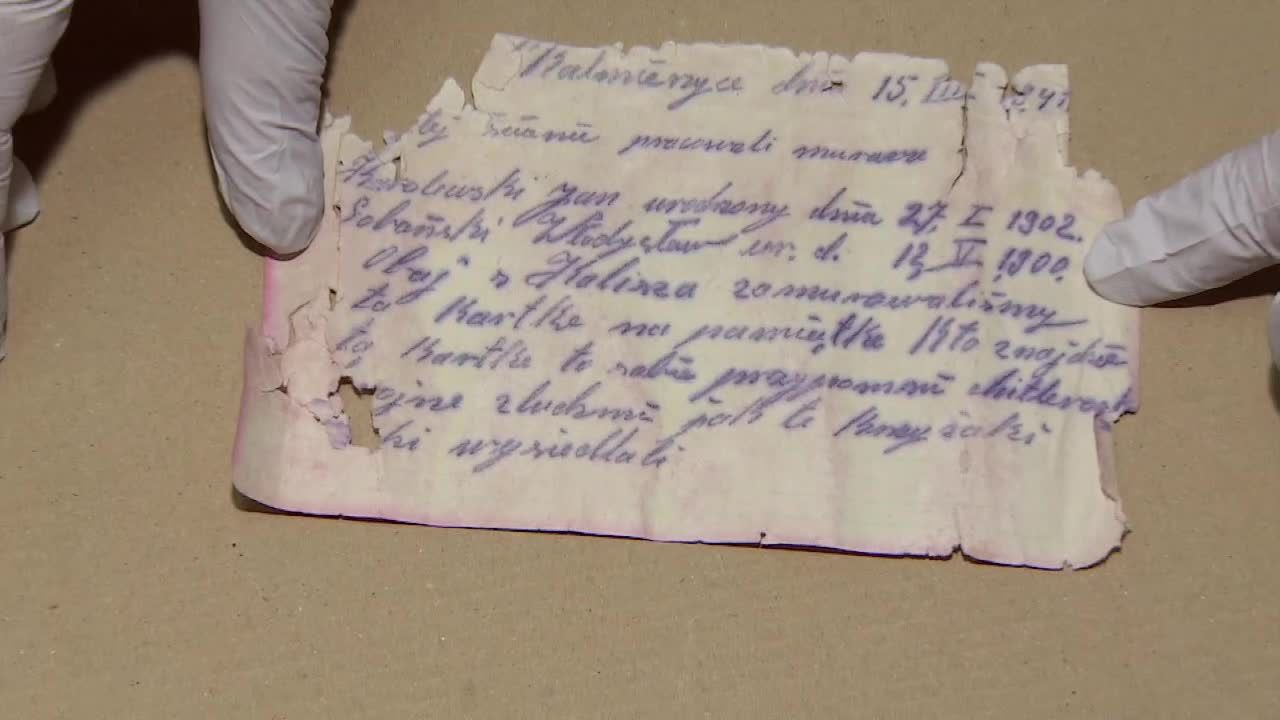 dnia 15. III 1941
tej ścianie pracowali murarze
Karolewski Jan urodzony dnia 27. I 1902.
Sobański Władysław ur. d. 12. V 1900.
Obaj z Kalisza zamurowaliśmy
tą kartke na pamiątke Kto znajdzie
tą kartke to sobie przypomni hitlerowsk
ojne zludzmi jak te krzyżaki
ki wysiedlali